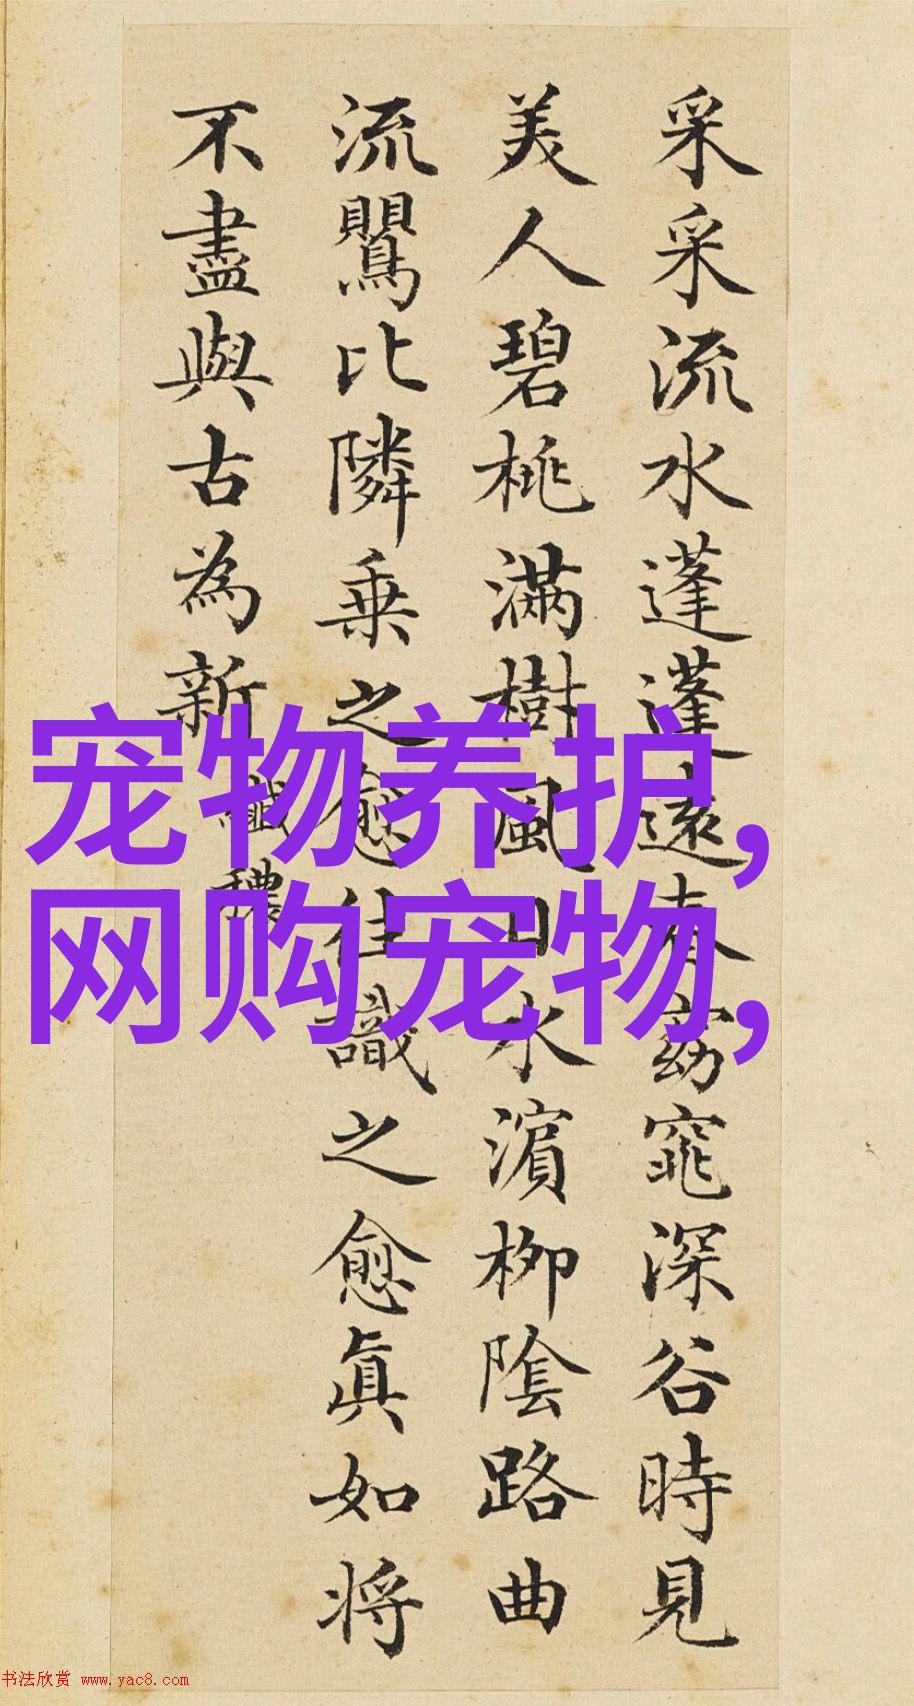 采采流水蓬蓬遠春窈窕深谷時見
美人碧桃滿樹風日水濱柳隂路曲
流鸎比隣乗之愈往識之愈眞如将
不盡與古為新
纖穠
宠物养护,
网购宠物,
书法欣赏 www.yac8.com